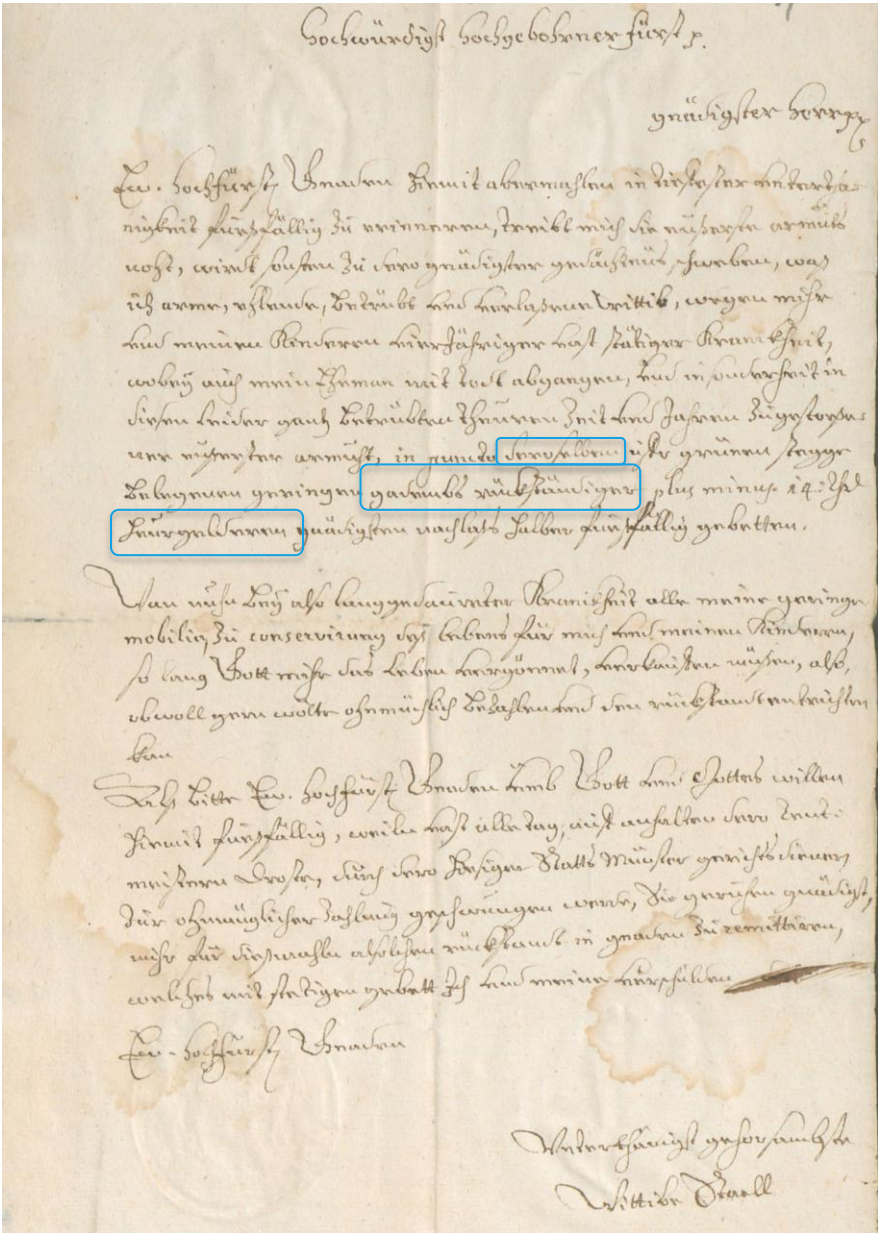 Hochwürdigst Hochgebohrner Fürst p.
gnädigster Herr pp
Ew. Hochfürstl. Gnaden hiemit abermahlen in tiefester Untertha-
nigkeit fuesfällig zu erinneren, treibt mich die eußerste armuths
noht, wirdt sonsten zu dero gnädigster gedächtnus schweben, waß
ich arme, ehlende, betrübte und verlaßene Wittib, wegen mihr
und meinen Kinderen vierjähriger vast stätiger Kranckheit,
wobey auch mein Eheman mit todt abgangen, und insonderheit in
diesen leider gantz betrübten theuren Zeit und Jahren zugestoße-
ner eußerster armuht, in puncto deroselben ufr grünen stegge
belegenen geringen gadembs rückständiger plus minus 14 thlr
heurgelderen gnädigsten nachlaß halber fuesfällig gebetten.
Wan nuhn bey also langgedaureter Kranckheit alle meine geringe
mobilia, zu conservirung deß lebens für mich und meinen Kinderen,
so lang Gott mihr das leben vergönnet, verkauffen müßen, also,
obwoll gern wolte ohnmüchlich bezahlen und den rückstandt entrichten
kan
Alß bitte Ew. Hochfürstl. Gnaden umb Gott und Gottes willen
hiemit fuesfällig, weiln vast alle tag, auff anhalten dero Rent-
meistern Droste, durch dero hiesiger Statts Münster gerichtsdienern
zur ohnmüglicher Zahlung gezwungen werde, Sie geruhen gnädigst,
mihr für dießmahln alsolchen rückstandt in gnaden zu remittiren,
welches mit stetigen gebett Ich und meine verschulden
Ew. Hochfürstl. Gnaden
Unterthänigst gehorsambste
Wittibe Staell